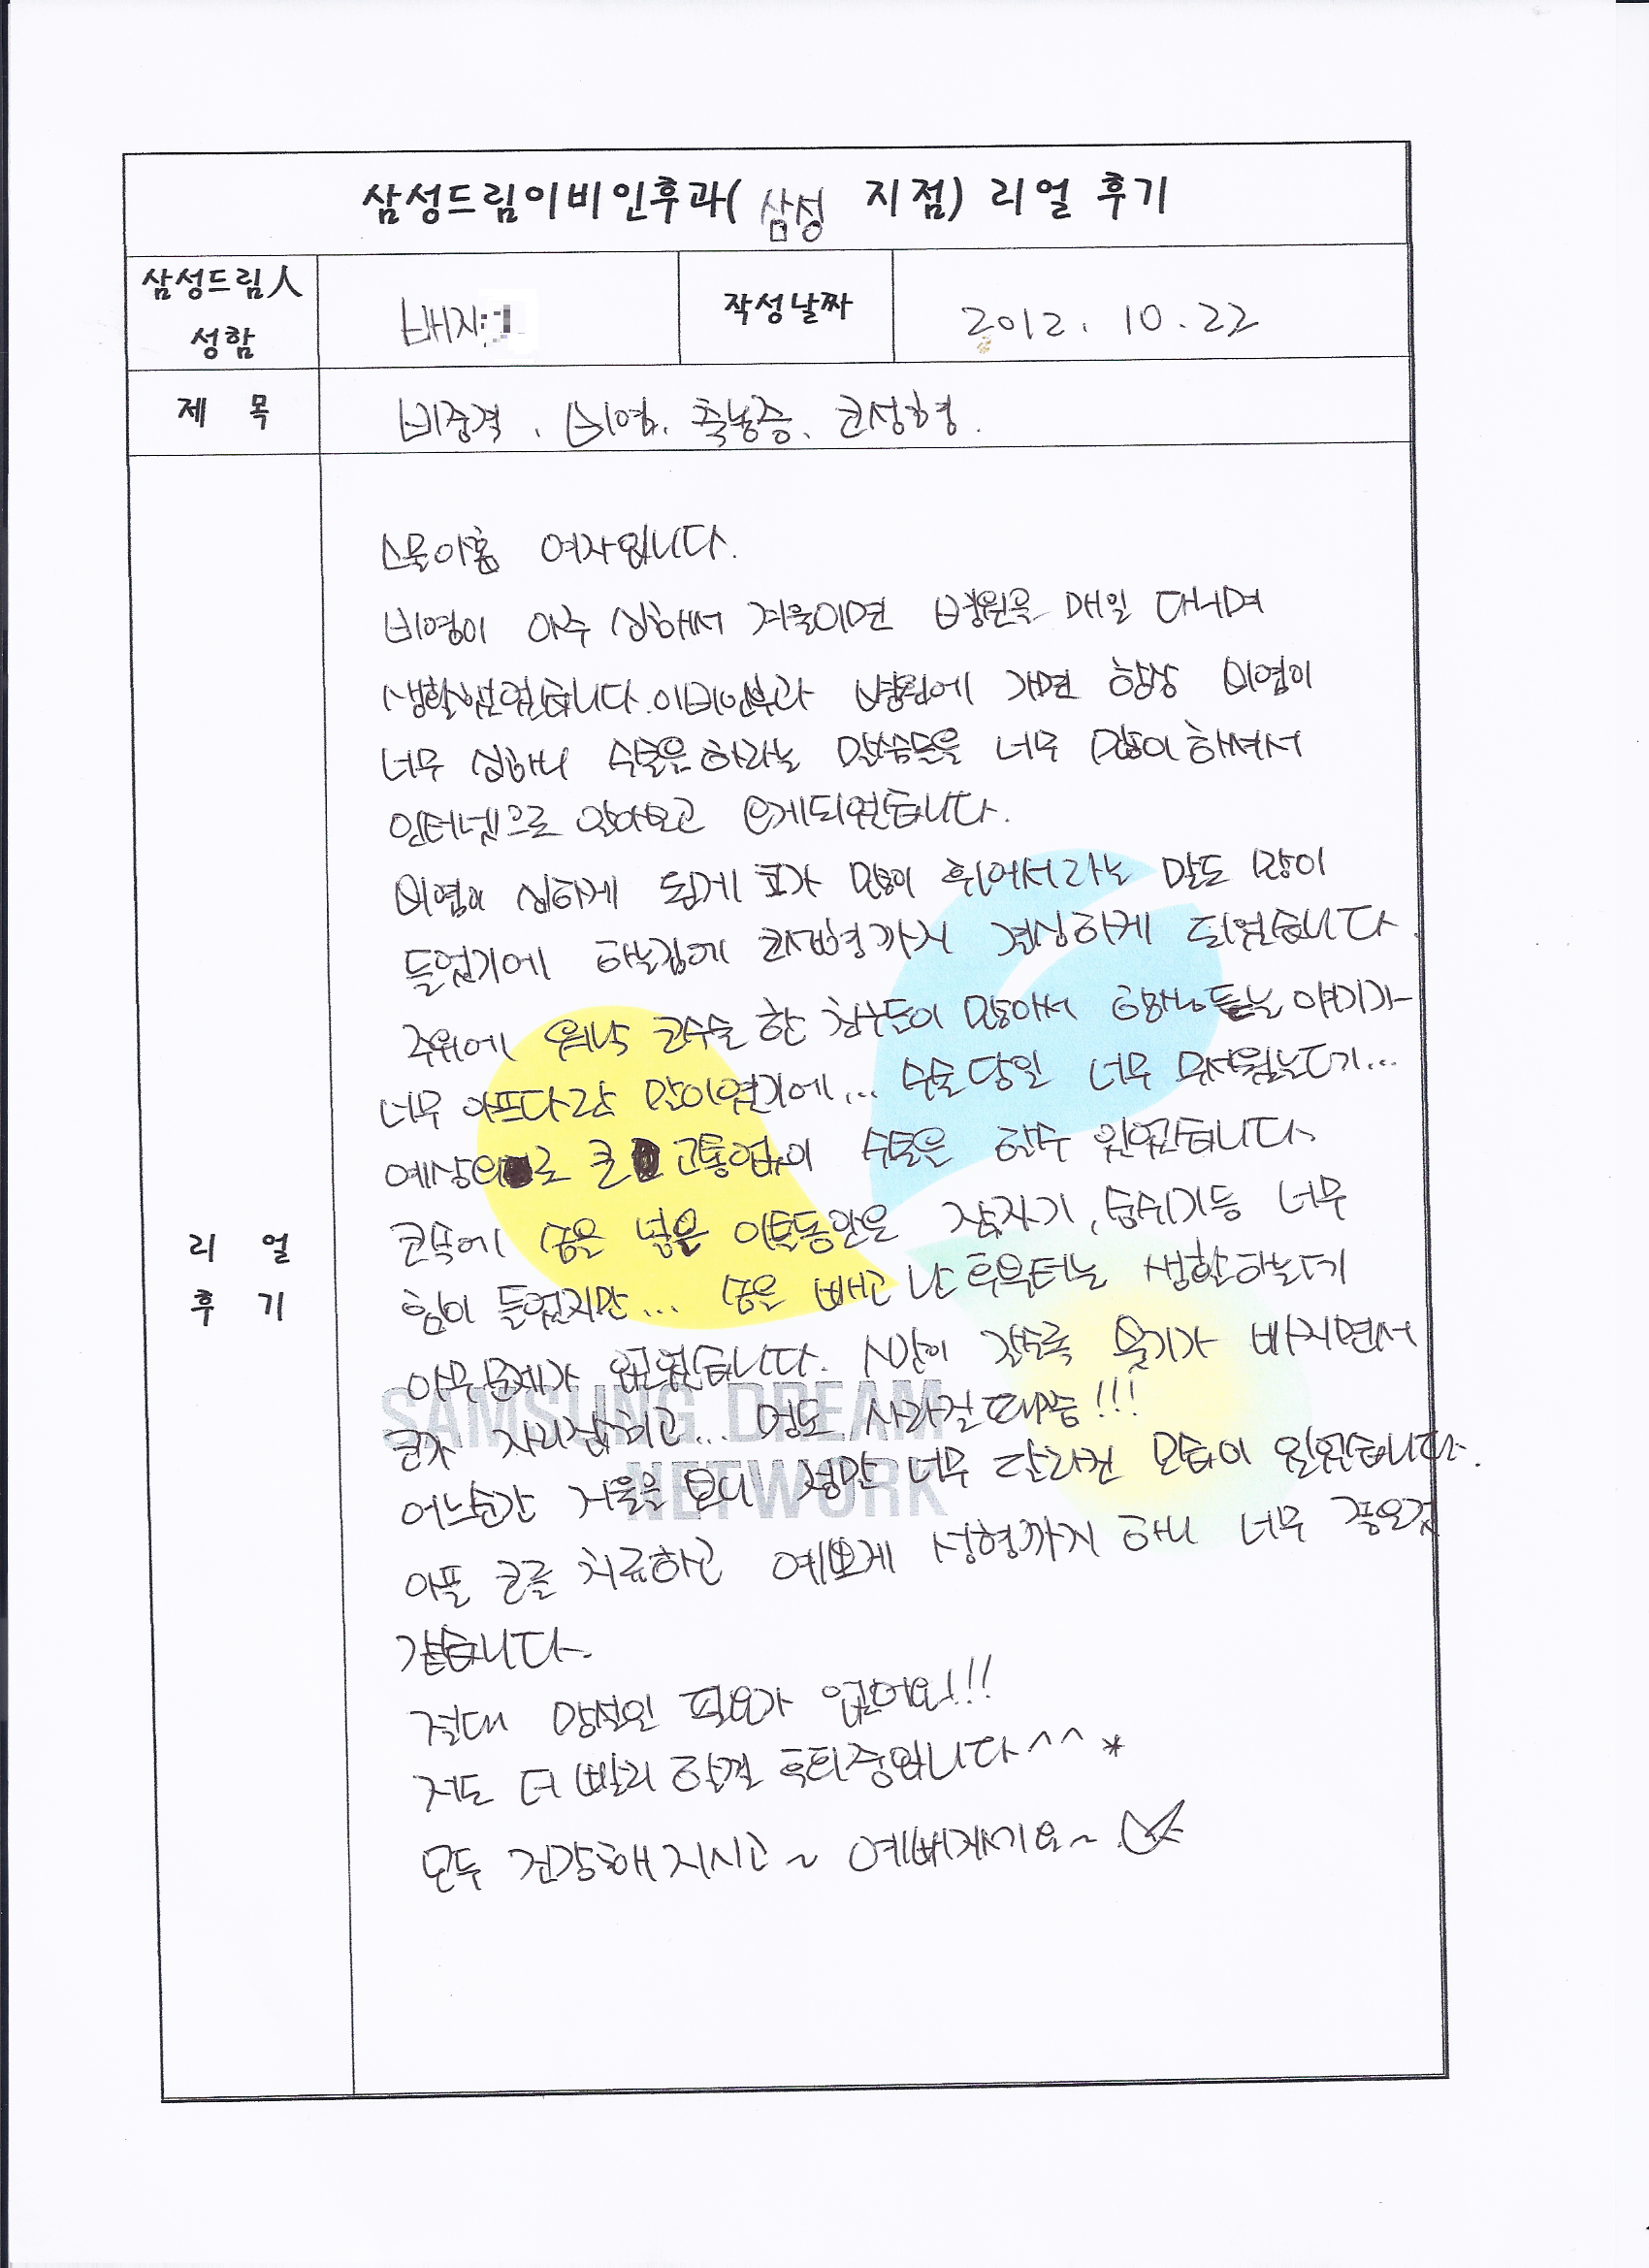 삼성드림이비인후과( 삼성 지점) 리얼 후기
삼성드림人
성함
배지
작성날짜
2012. 10. 22
제 목
비중격, 비염, 축농증, 코성형.
리 얼
후 기
스물아홉 여자입니다.
비염이 아주 심해서 겨울이면 병원을 매일 다니며
생활했었습니다. 이비인후과 병원에 가면 항상 비염이
너무 심하니 수술을 하라는 말씀들을 너무 많이 하셔서
인터넷으로 알아보고 오게되었습니다.
비염이 심하게 된게 코가 많이 휘어서라는 말도 많이
들었기에 하는김에 코성형까지 결심하게 되었습니다.
주위에 워낙 코수술 한 친구들이 많아서 들는 얘기가
너무 아프다란 말이였기에... 수술당일 너무 무서웠는데...
예상외로 큰 고통없이 수술을 할수 있었습니다
콧속에 솜을 넣은 이틀동안은 잠자기, 숨쉬기등 너무
힘이 들었지만... 솜을 빼고 난 후부터는 생활하는데
아무문제가 없었습니다. 시간이 갈수록 붓기가 빠지면서
코가 자리잡히고... 멍도 사라질때쯤!!!
어느순간 거울을 보니 정말 너무 달라진 모습이 있었습니다.
아픈 코를 치료하고 예쁘게 성형까지 하니 너무 좋은것
같습니다.
절대 망설일 필요가 없어요!!!
저도 더 빨리 할껄 후회중입니다^^*
모두 건강해지시고~ 예뻐지세요~
SAMSUNG DREAM
NETWORK